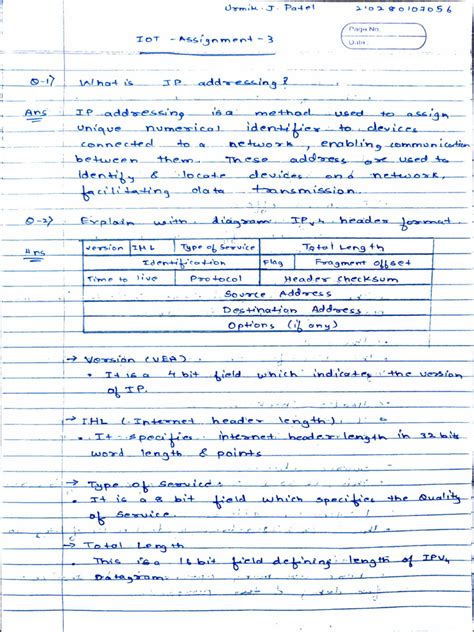 Urmik. J. Patel 210280107056
IOT - Assignment - 3
Page No.
Date:
Q-1) What is IP addressing?
Ans IP addressing is a method used to assign
unique numerical identifier to devices
connected to a network, enabling communication
between them. These address are used to
Identify & locate devices and network,
facilitating data transmission.
Q-2) Explain with diagram IPv4 header format.
Ans
version IHL Type of Service Total Length
Identification Flag Fragment offset
Time to live Protocol Header checksum
Source Address
Destination Address
Options (if any)
→ Version (VER)
• It is a 4 bit field which indicates the version
of IP.
→ IHL (Internet header length)
• It specifies internet header length in 32 bit
word length & points
→ Type of Service:
• It is a 8 bit field which specifies the Quality
of Service.
→ Total Length
• This is a 16 bit field defining length of IPv4
Datagram.